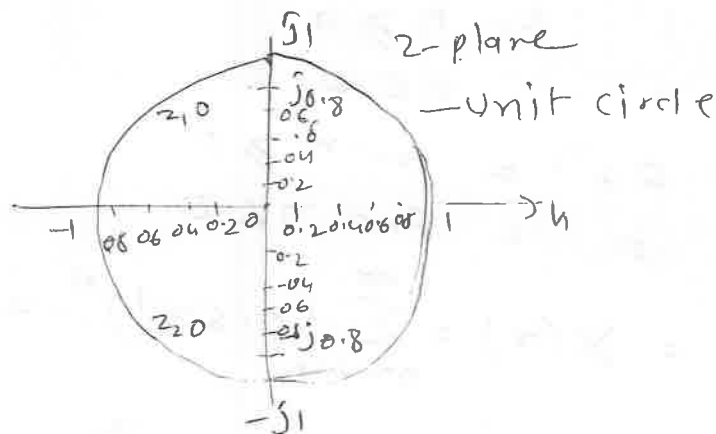 j1
z-plane
j0.8
— unit circle
z1 0
06
.6
04
0.2
-1 08 06 04 0.2 0 0.2 0.4 0.6 08 1 → h
0.2
-04
06
z2 0
08 j0.8
-j1